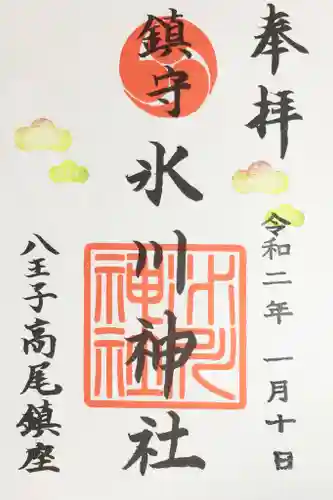 奉拝
令和二年 一月十日
鎮守
氷川神社
八王子高尾鎮座
氷川
神社